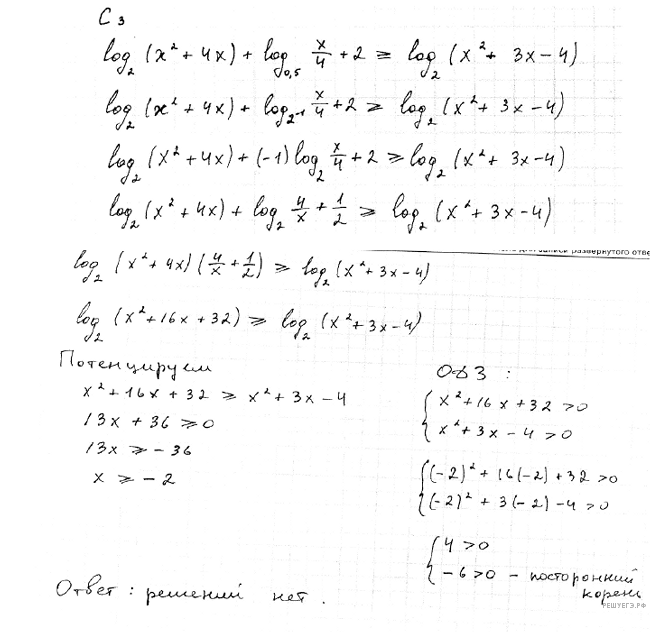 С 3
log₂ (x² + 4x) + log₀,₅ x/4 + 2 ≥ log₂ (x² + 3x − 4)
log₂ (x² + 4x) + log₂₋₁ x/4 + 2 ≥ log₂ (x² + 3x − 4)
log₂ (x² + 4x) + (−1) log₂ x/4 + 2 ≥ log₂ (x² + 3x − 4)
log₂ (x² + 4x) + log₂ 4/x + 1/2 ≥ log₂ (x² + 3x − 4)
записи развернутого отве
log₂ (x² + 4x) (4/x + 1/2) ≥ log₂ (x² + 3x − 4)
log₂ (x² + 16x + 32) ≥ log₂ (x² + 3x − 4)
Потенцируем
x² + 16x + 32 ≥ x² + 3x − 4
13x + 36 ≥ 0
13x ≥ − 36
x ≥ − 2
ОДЗ :
{ x² + 16x + 32 > 0
x² + 3x − 4 > 0
{ (−2)² + 16(−2) + 32 > 0
(−2)² + 3(−2) − 4 > 0
{ 4 > 0
− 6 > 0 − посторонний
корень
Ответ : решений нет .
РЕШУЕГЭ.РФ